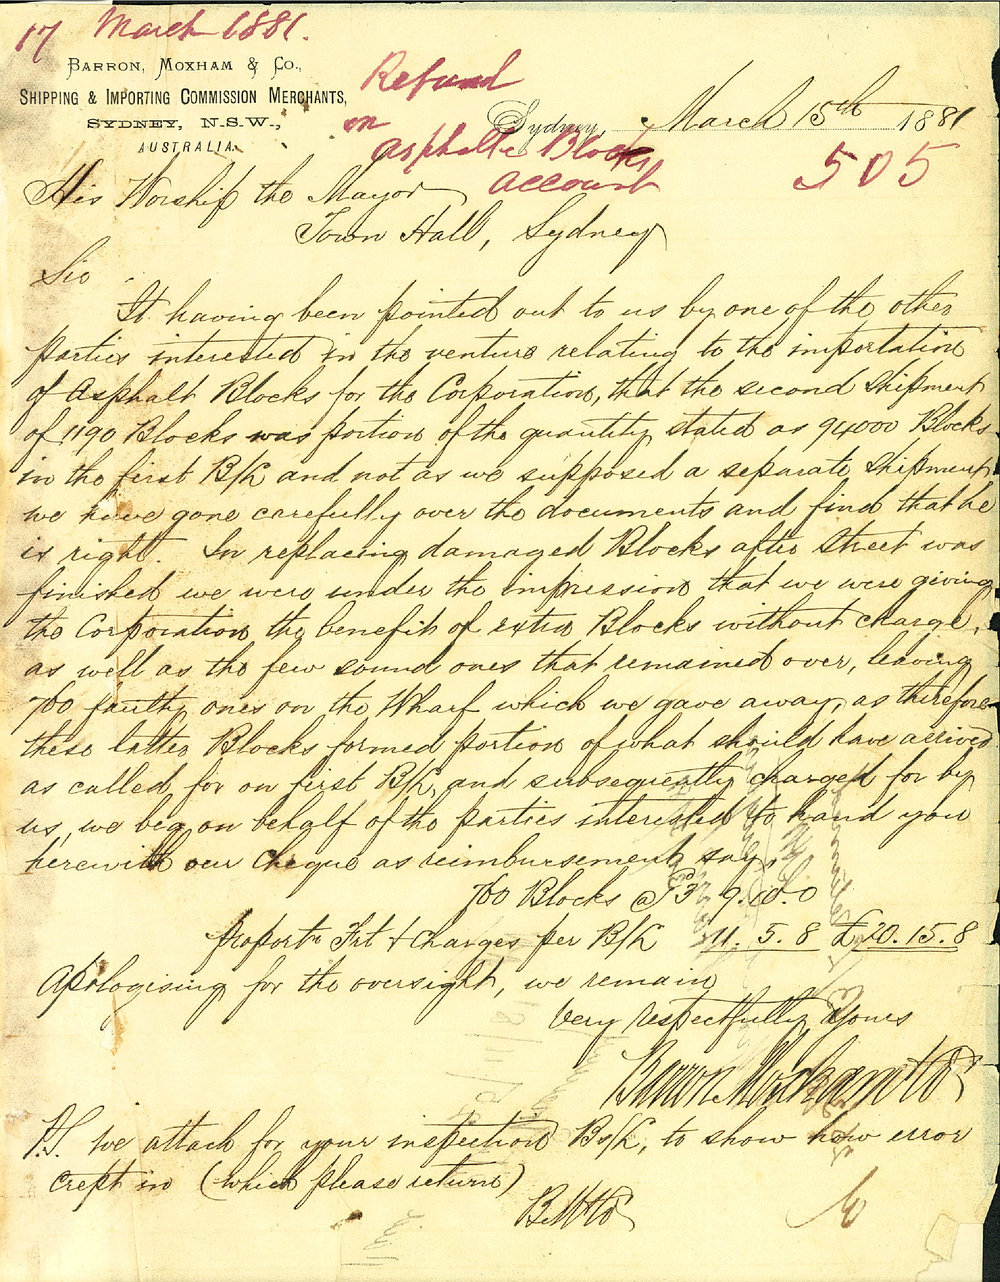 17 March 1881.
BARRON, MOXHAM & Co.,
SHIPPING & IMPORTING COMMISSION MERCHANTS,
SYDNEY, N.S.W.,
AUSTRALIA.
Refund
on
Asphalte Blocks
account
505
Sydney, March 15th 1881
His Worship the Mayor
Town Hall, Sydney
Sir
It having been pointed out to us by one of the other
parties interested in the venture relating to the importation
of Asphalt Blocks for the Corporation, that the second shipment
of 1190 Blocks was portion of the quantity stated as 94000 Blocks
in the first B/L and not as we supposed a separate shipment
we have gone carefully over the documents and find that he
is right. In replacing damaged Blocks after Street was
finished we were under the impression that we were giving
the Corporation the benefit of extra Blocks without charge,
as well as the few sound ones that remained over, leaving
760 faulty ones on the Wharf which we gave away, as therefore
these latter Blocks formed portion of what should have arrived
as called for on first B/L, and subsequently charged for by
us, we beg on behalf of the parties interested to hand you
herewith our cheque as reimbursement, say,
760 Blocks @ 3d 9.10.0
proportn Frt & Charges per B/L 11. 5. 8 £20.15.8
Apologising for the oversight, we remain
Very respectfully Yours
Barron Moxham & Co
P.S. we attach for your inspection Bs/L, to show how error
crept in (which please return)
B M & Co